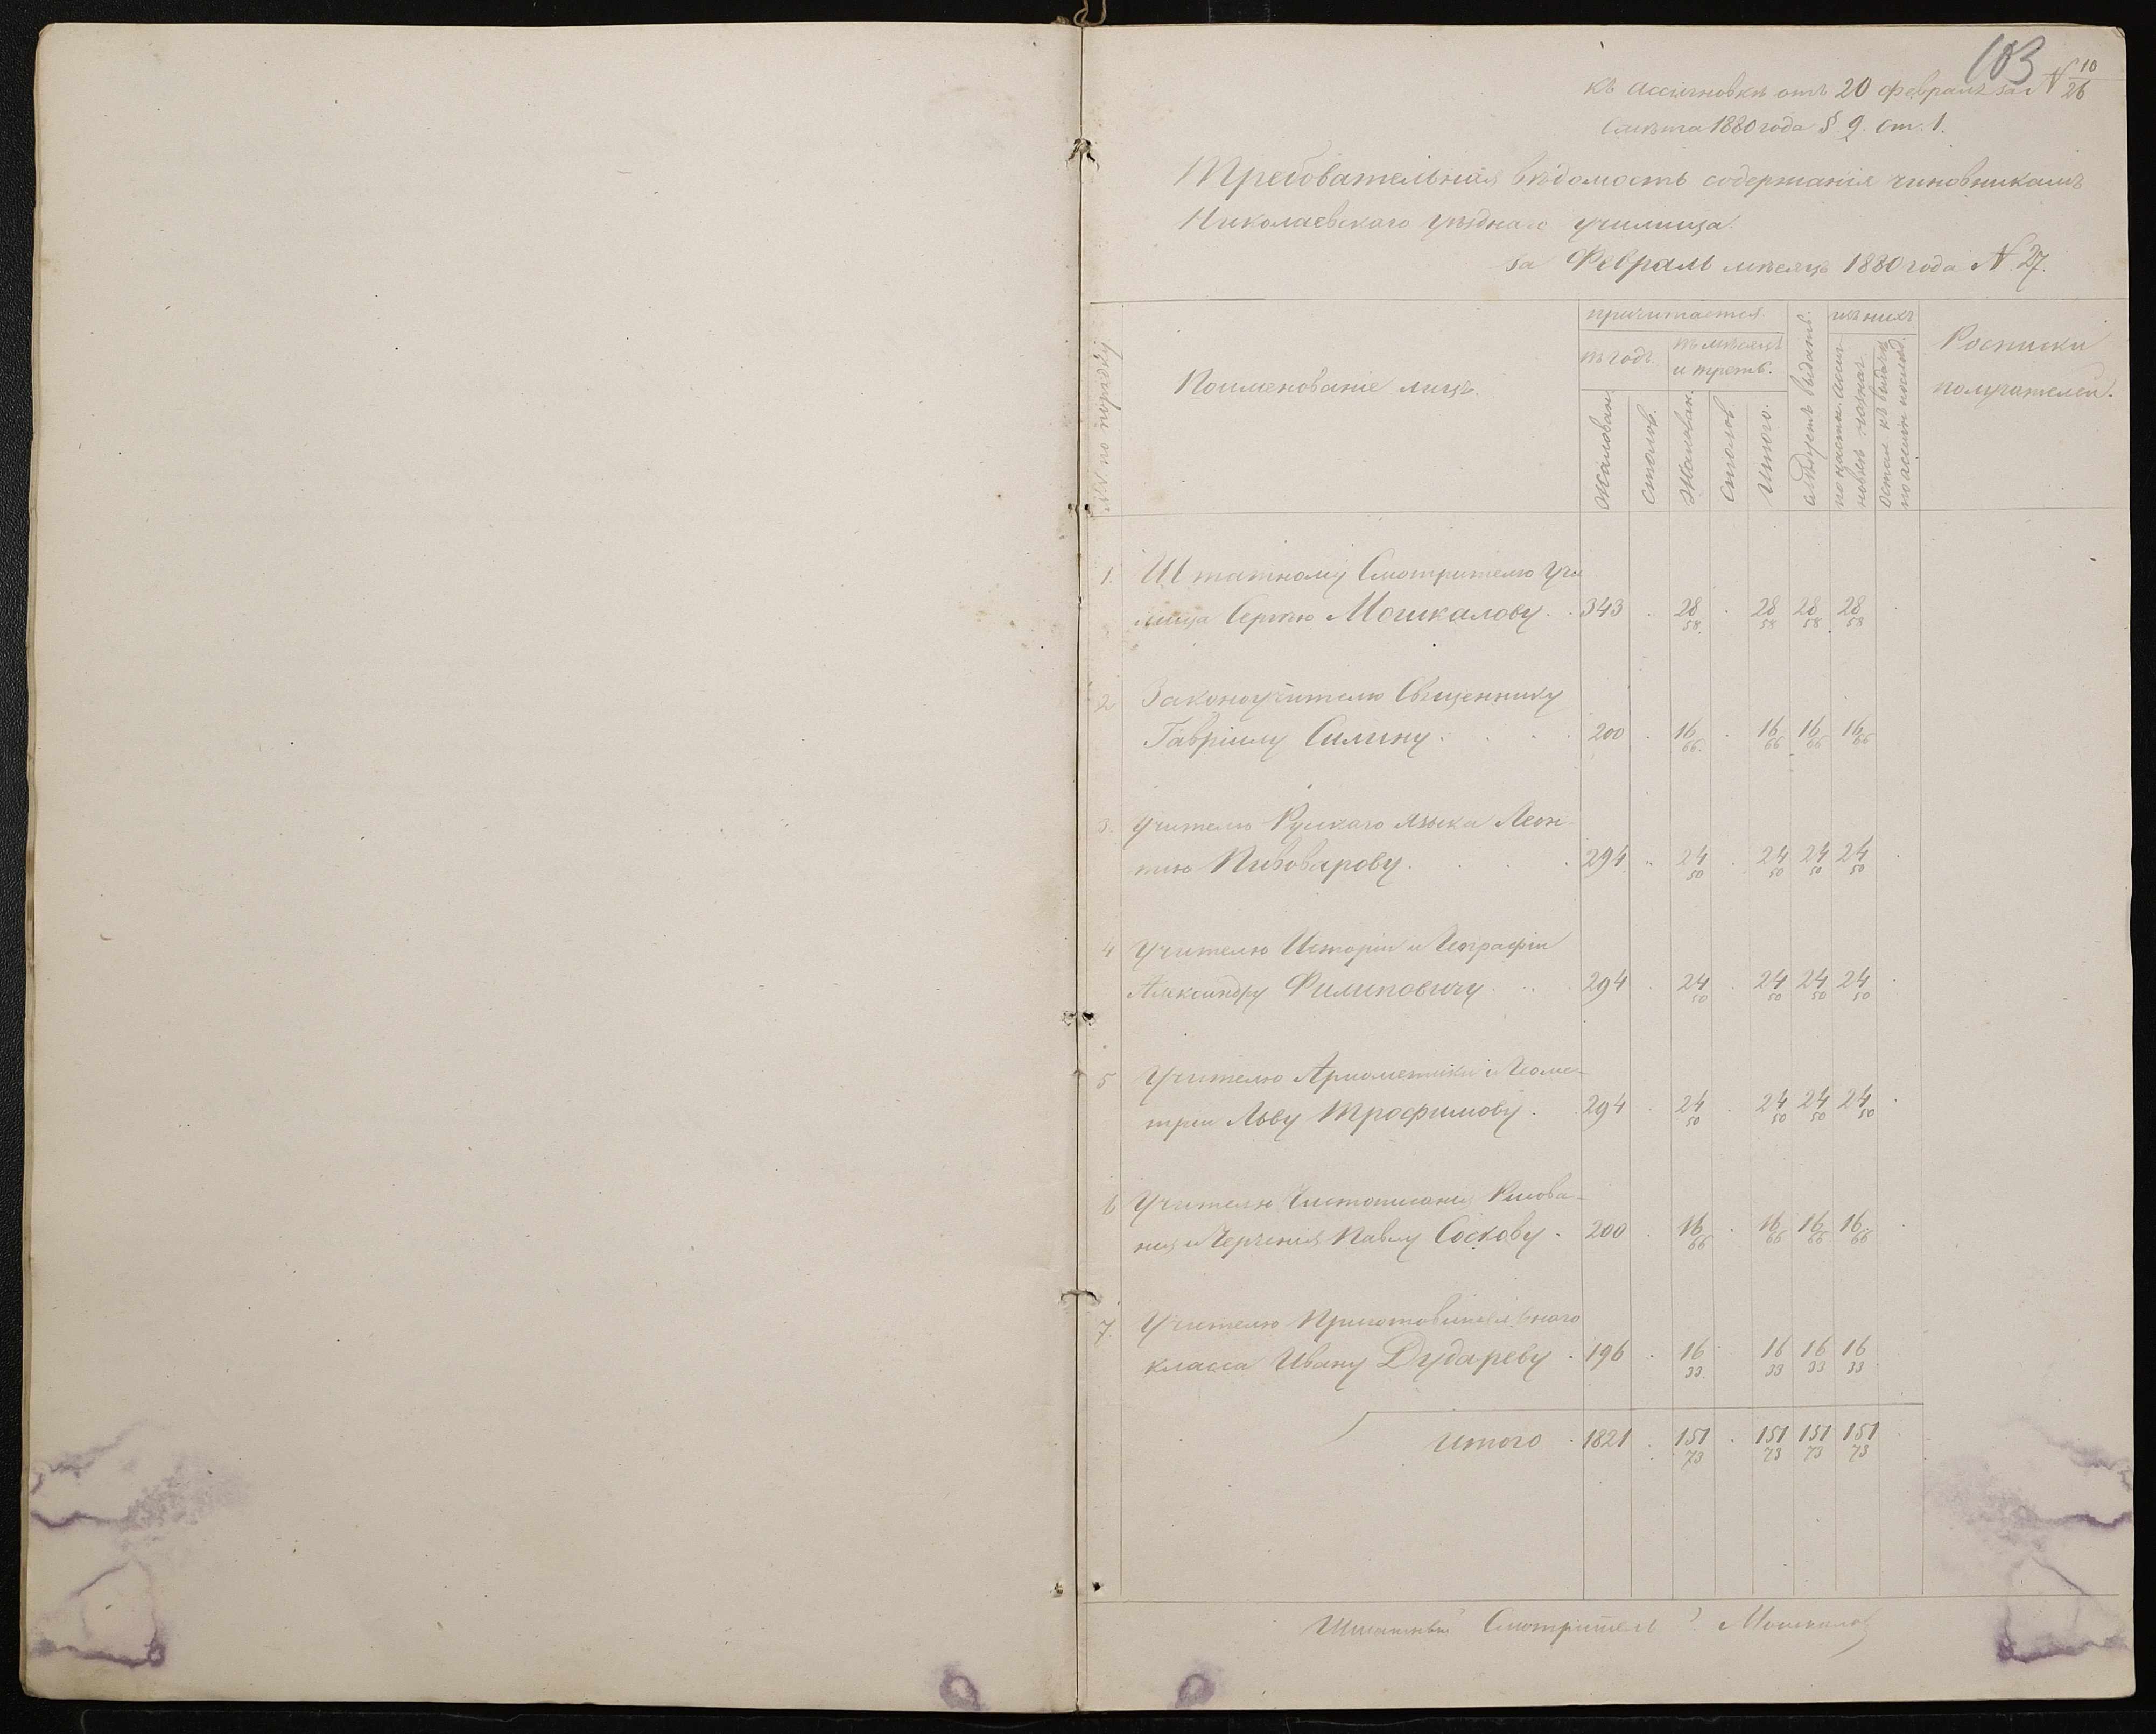 103
къ ассигновкѣ отъ 20 февраля за № 10/26
Смѣта 1880 года § 9. ст. 1.
Требовательная вѣдомость содержанія чиновникамъ
Николаевскаго уѣзднаго училища
за Февраль мѣсяцъ 1880 года № 27.
№ по порядку
Поименованіе лицъ.
причитается
въ годъ.
въ мѣсяцъ
и треть.
Жалован.
столов.
Жалован.
столов.
Итого.
слѣдуетъ выдать.
изъ нихъ
Росписки
получателей.
1. Штатному Смотрителю Учи
лища Сергѣю Мошкалову . . 343 . 28 58 . 28 58 28 58 28 58
2 Законоучителю Священнику
Гавріилу Силину . . . . 200 . 16 66 . 16 66 16 66 16 66
3. Учителю Русскаго языка Леон
тію Пивоварову . . . . 294 . 24 50 . 24 50 24 50 24 50
4 Учителю Исторіи и Географіи
Александру Филиповичу . . . 294 . 24 50 . 24 50 24 50 24 50
5 Учителю Ариѳметики и Геоме-
тріи Льву Трофимову . . 294 . 24 50 . 24 50 24 50 24 50
6 Учителю Чистописанія Рисова-
нія и Черченія Павлу Соскову . 200 . 16 66 . 16 66 16 66 16 66
7. Учителю Приготовительнаго
класса Ивану Дудареву . 196 . 16 33 . 16 33 16 33 16 33
Итого . 1821 . 151 73 . 151 73 151 73 151 73
Штатный Смотритель Мошкалов